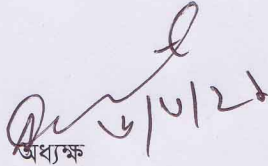 ৬/৮/২১
অধ্যক্ষ